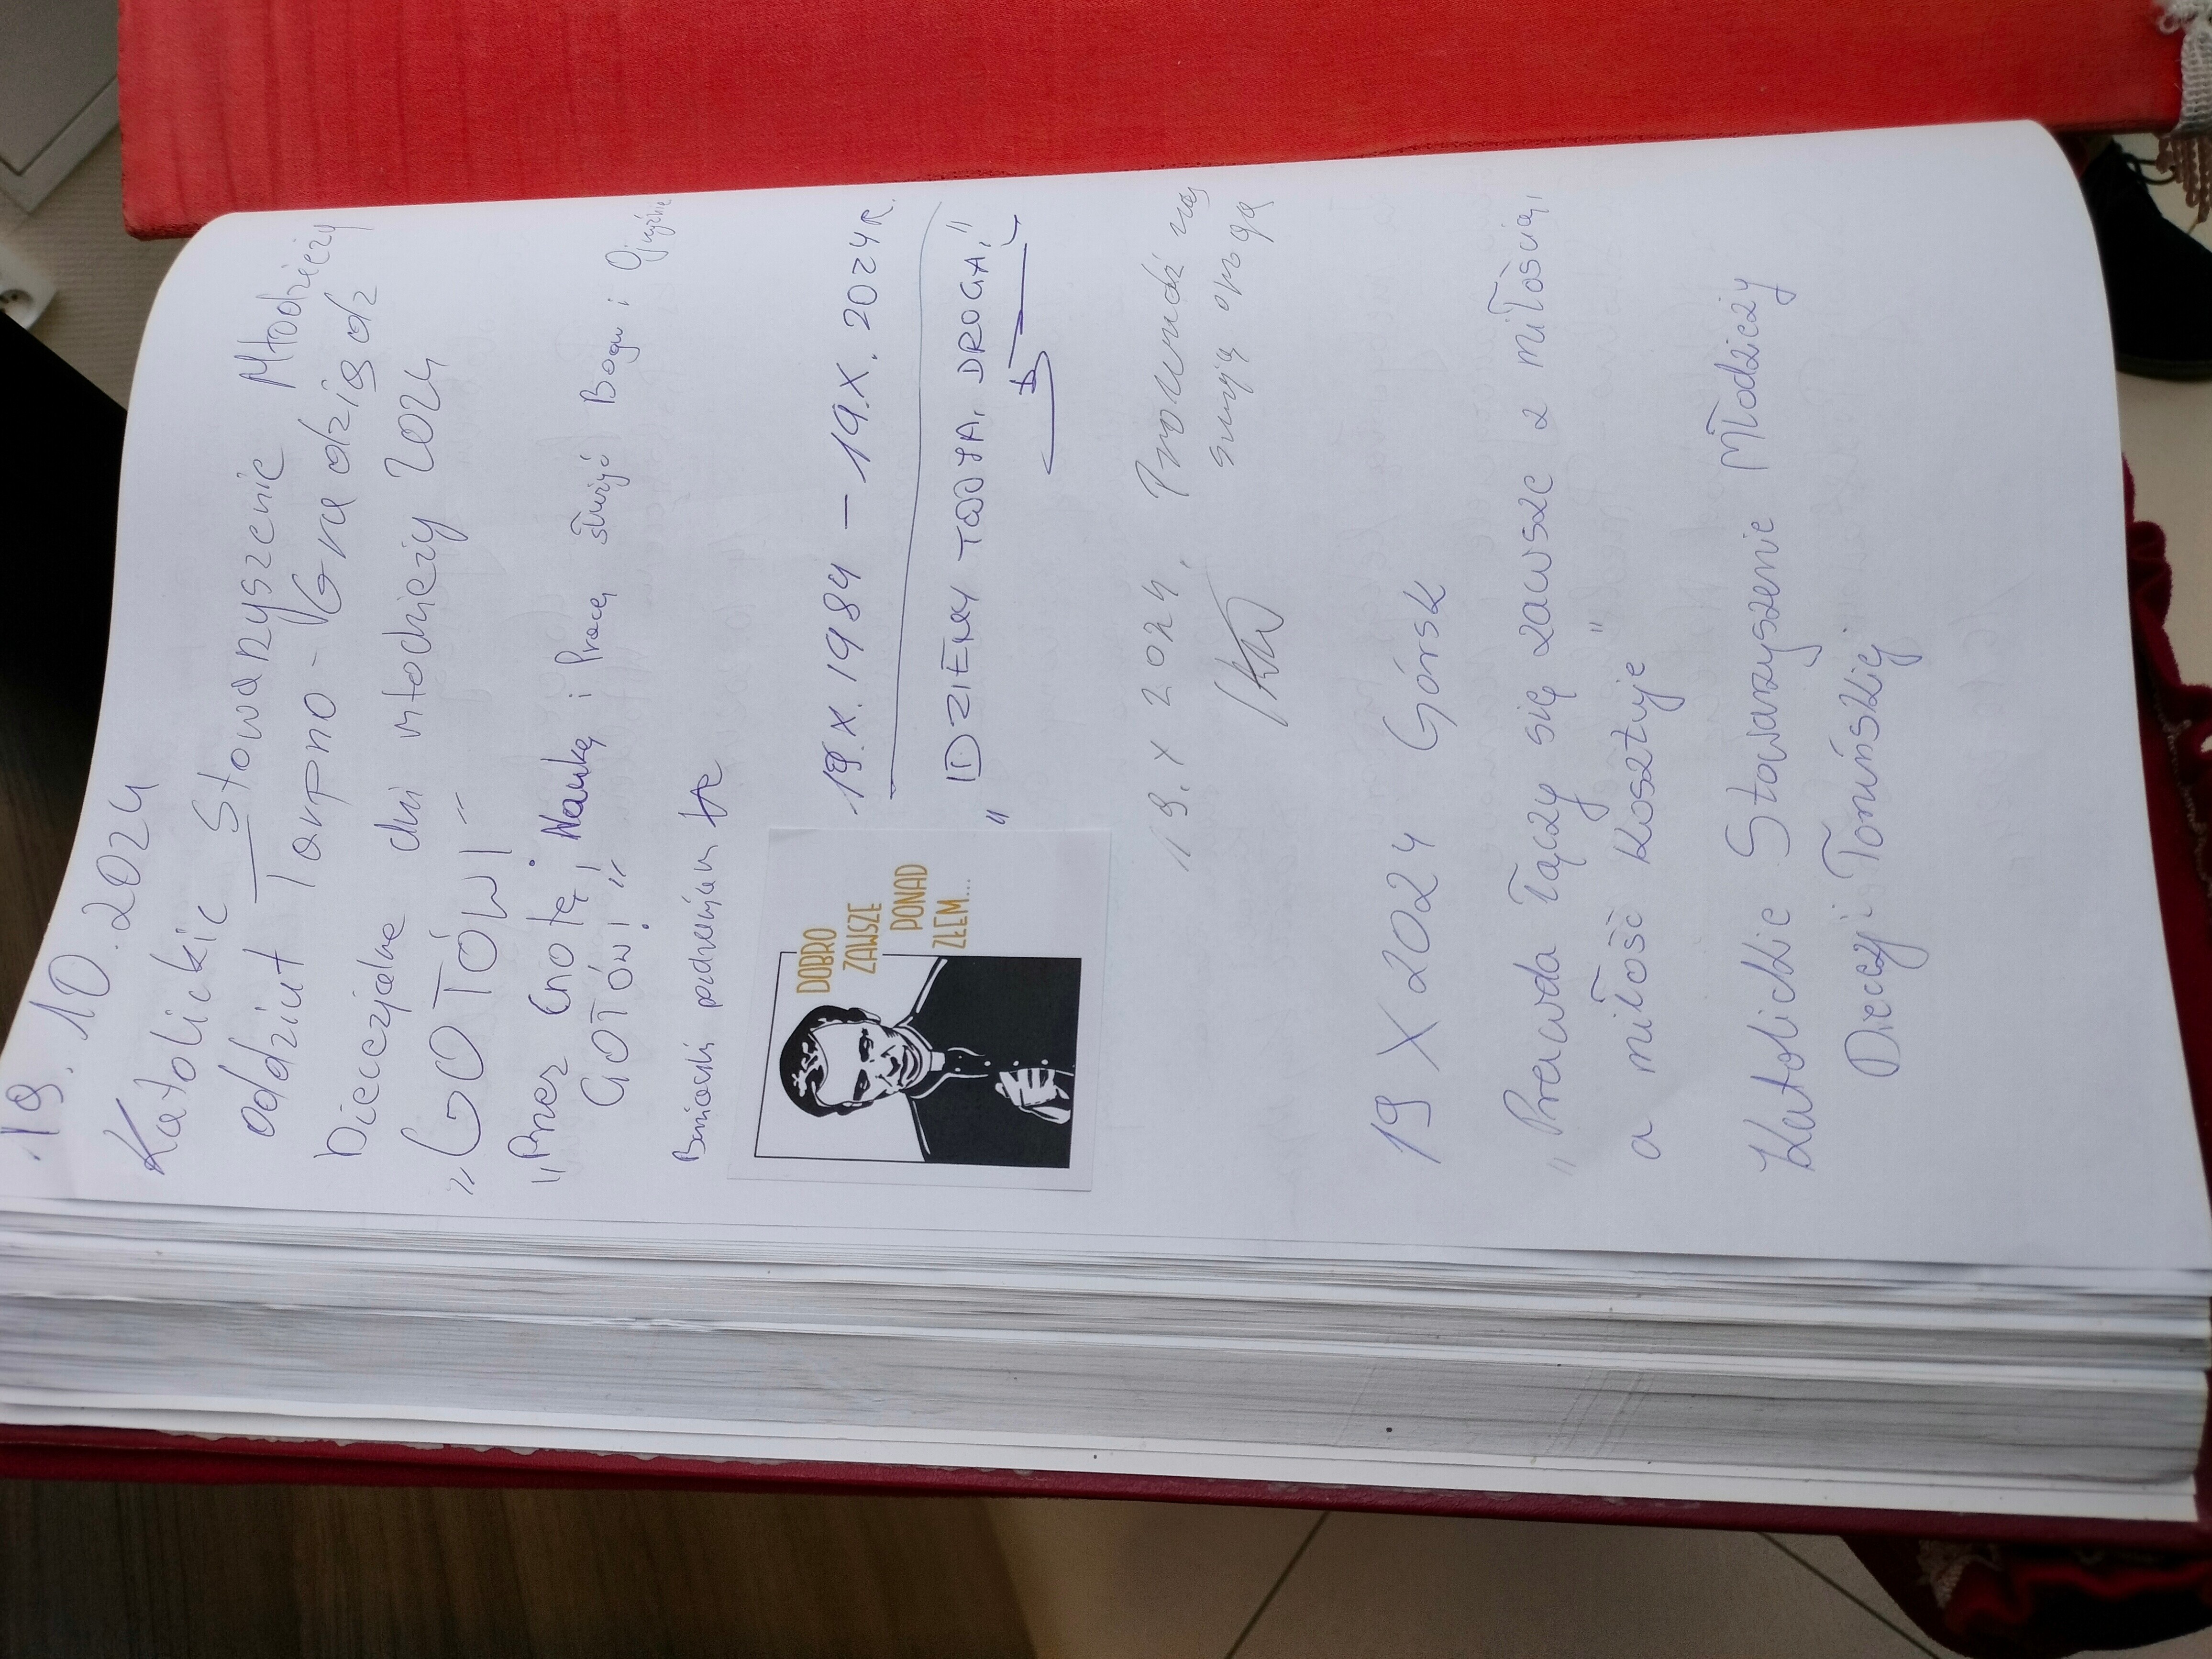 19.10.2024
Katolickie Stowarzyszenie Młodzieży
oddział Tarpno - Grudziądz
Diecezjalne dni młodzieży 2024
„GOTÓW!"
„Przez Cnotę, Naukę i Pracę służyć Bogu i Ojczyźnie
GOTÓW!"
19.X.1984 – 19.X.2024R.
„IDZIEMY TWOJĄ DROGĄ."
DOBRO
ZAWSZE
PONAD
ZŁEM...
19.X 2024. Prowadź nas
swoją drogą
19 X 2024 Górsk
"Prawda łączy się zawsze z miłością,
a miłość kosztuje"
Katolickie Stowarzyszenie Młodzieży
Diecezji Toruńskiej